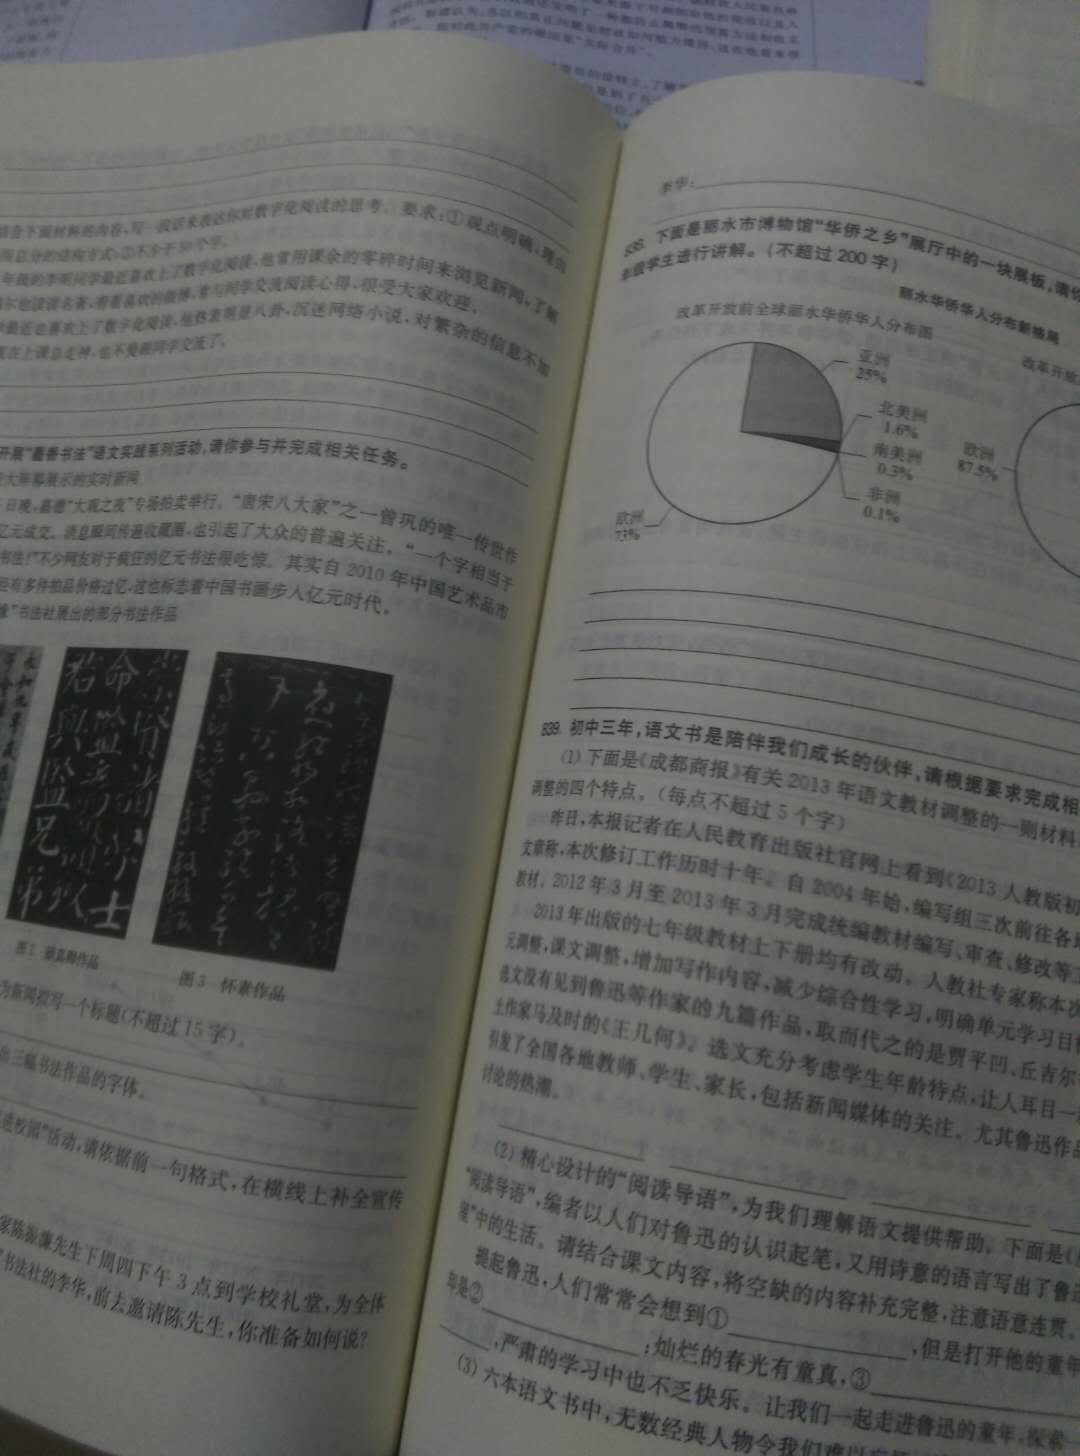 结合下面材料的内容,写一段话来表达你对数字化阅读的思考。要求:①观点明确,理由
用总分的结构方式;③不少于50个字。
年级的李明同学最近喜欢上了数字化阅读,他常用课余的零碎时间来浏览新闻,了解
尔也读读名著,看看喜欢的微博,常与同学交流阅读心得,很受大家欢迎。
最近也喜欢上了数字化阅读,他热衷明星八卦,沉迷网络小说,对繁杂的信息不加
现在上课总走神,也不爱跟同学交流了。
开展“最香书法”语文实践系列活动,请你参与并完成相关任务。
大屏幕展示的实时新闻
日晚,嘉德“大观之夜”专场拍卖举行。“唐宋八大家”之一曾巩的唯一传世作
亿元成交。消息瞬间传遍收藏圈,也引起了大众的普遍关注。“一个字相当于
书法!”不少网友对于疯狂的亿元书法很吃惊。其实自2010年中国艺术品市
经有多件拍品价格过亿,这也标志着中国书画步入亿元时代。
”书法社展出的部分书法作品
图3 怀素作品
为新闻拟写一个标题(不超过15字)。
出三幅书法作品的字体。
进校园”活动,请依据前一句格式,在横线上补全宣传
家陈振濂先生下周四下午3点到学校礼堂,为全体
”书法社的李华,前去邀请陈先生,你准备如何说?
李华:
838. 下面是丽水市博物馆“华侨之乡”展厅中的一块展板,请你
年级学生进行讲解。(不超过200字)
丽水华侨华人分布新格局
改革开放前全球丽水华侨华人分布图
改革开放
亚洲
25%
北美洲
1.6%
南美洲
0.3%
非洲
0.1%
欧洲
73%
欧洲
87.5%
839. 初中三年,语文书是陪伴我们成长的伙伴,请根据要求完成相
(1)下面是《成都商报》有关2013年语文教材调整的一则材料
调整的四个特点。(每点不超过5个字)
昨日,本报记者在人民教育出版社官网上看到《2013人教版初
文章称,本次修订工作历时十年。自2004年始,编写组三次前往各地
教材。2012年3月至2013年3月完成统编教材编写、审查、修改等工
2013年出版的七年级教材上下册均有改动。人教社专家称本次
元调整,课文调整,增加写作内容,减少综合性学习,明确单元学习目标
选文没有见到鲁迅等作家的九篇作品,取而代之的是贾平凹、丘吉尔
土作家马及时的《王几何》。选文充分考虑学生年龄特点,让人耳目一
引发了全国各地教师、学生、家长,包括新闻媒体的关注。尤其鲁迅作品
讨论的热潮。
(2)精心设计的“阅读导语”,为我们理解语文提供帮助。下面是《
“阅读导语”,编者以人们对鲁迅的认识起笔,又用诗意的语言写出了鲁迅
屋”中的生活。请结合课文内容,将空缺的内容补充完整,注意语意连贯。
提起鲁迅,人们常常会想到① ,但是打开他的童年
却是② ;灿烂的春光有童真,③
,严肃的学习中也不乏快乐。让我们一起走进鲁迅的童年,探索
(3)六本语文书中,无数经典人物令我们难以忘